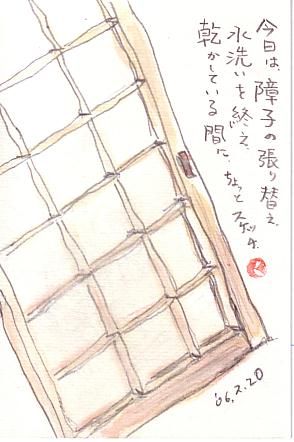 今日は、障子の張り替え、
水洗いを終え、
乾かしている間に、ちょっとスケッチ。
'06.2.20